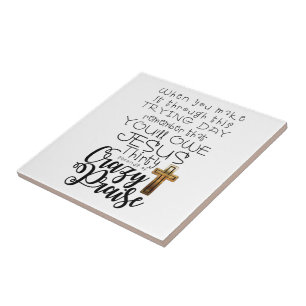 When you make
it through this
TRYING DAY
remember that
YOU'll OWE
JESUS
Thirty
Crazy
Praise